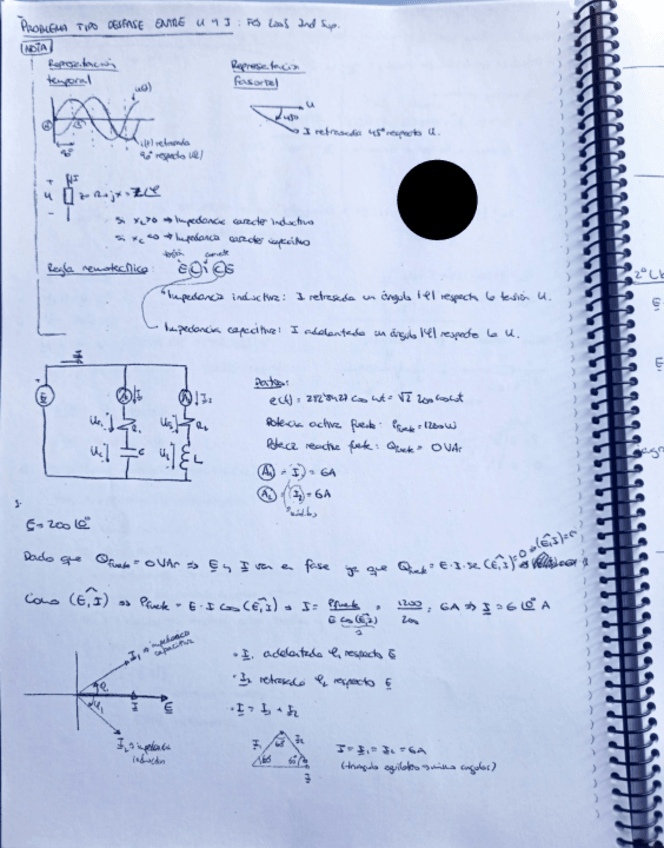 PROBLEMA TIPO DESFASE ENTRE U Y I:
NOTA
Representación temporal
Representación fasorial
u(t)
i(t) retrasada
90° respecto u(t)
90°
U
I retrasada 45° respecto U.
+
U
-
I
si x>0 ⇒ Impedancia caracter inductivo
si x<0 ⇒ Impedancia caracter capacitivo
Regla nemotécnica:
tensión corriente
ELICE
Impedancia inductiva: I retrasada un ángulo |φ| respecto la tensión U.
Impedancia capacitiva: I adelantada un ángulo |φ| respecto la U.
I
E
I₁
I₂
R₁
R₂
C
L
Datos:
e(t) = 282'8427 cos wt = √2 200 cos wt
Potencia activa fuente: Pfuente = 1200 W
Potencia reactiva fuente: Qfuente = 0 VAr
A₁ = |I₁| = 6A
A₂ = |I₂| = 6A
E = 200 |0°
Dado que Qfuente = 0 VAr ⇒ E y I van en fase ya que Qfuente = E·I·sen (E,I)
Como (E,I) ⇒ Pfuente = E·I cos (E,I) ⇒ I = Pfuente / E cos (E,I) = 1200 / 200 = 6A ⇒ I = 6 |0° A
I₁ ⇒ impedancia capacitiva
I
E
I₂ ⇒ impedancia inductiva
· I₁ adelantada φ₁ respecto E
· I₂ retrasada φ₂ respecto E
· I = I₁ + I₂
I₁
I₂
60°
60°
60°
I
I = I₁ = I₂ = 6A
(triangulo equilatero ⇒ mismos angulos)